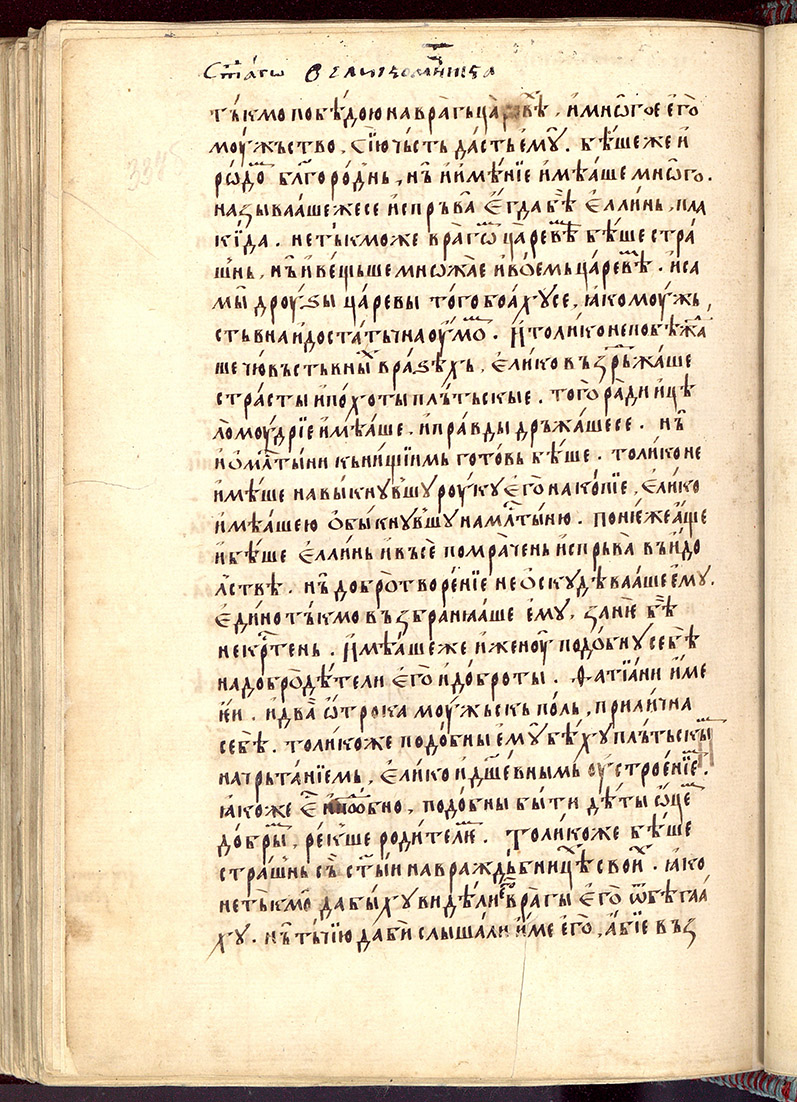 Ст҃а́гѡ великомч҃ника
ты́кмо побѣ́дою на враг҄ы ца́ревѣ, и҆ мнѡ́гое е҆го̀
моу́жьство, сїю̀ чь́сть да́сть е҆мꙋ̀. бѣ́ше же и҆
рѡ́дѡⷨ бл҃горо́днь, нь̏ и҆ и҆мѣ́нїе и҆мѣ́аше мнѡ́го.
называ́аше же се и҆спрь́ва̏ е҆гда̀ бѣ̏ е҆́ллинь, пла
ки́да. не ты́кмо же враго́ⷨ ца́ревѣⷨ бѣ́ше стра́
шнь, нь̏ и҆ ве́щьше мно́жае и҆ во́емь ца́ревѣⷨ. и҆ са
мы̏ дроу́ѕы ца́ревы того̀ боа́хꙋ се, ꙗ҆́ко моу́жь
ствьна и҆ доста́тьчна оу҆мо́ⷨ. И҆ толи́ко не побѣжⷣа́
ше чю́вьствьныⷯ вра́ѕѣхь, е҆ли́ко въздрь́жаше
стра́сты и҆ по́хоты плъ́тьскые. того̀ ра́ди и҆ цѣ
ломоу́дрїе и҆мѣ́аше. и҆ пра́вды дрьжа́ше се. нь̏
и҆ о҆ млⷭ҇ты́ни кь ни́щїимь гото́вь бѣ́ше. толи́ко не
и҆мѣ́ше навы́кнꙋвшꙋ роу́кꙋ е҆го̀ на ко́пїе, е҆ли́ко
и҆мѣ́аше ю҆ о҆бы́кнꙋвшꙋ на млⷭ҇ты́ню. поне́же а҆́ще
и҆ бѣ́ше е҆́ллинь и҆ въсѐ помра́чень и҆спрь́ва въ и҆́до
лⷭ҇твѣ. нь̏ добротворе́нїе не о҆скꙋдѣва́аше е҆мꙋ̀.
е҆ди́но ты́кмо възбраниа́аше е҆мꙋ̀, занѐ бѣ̏
некрⷭ҇те́нь. И҆мѣ́аше же и҆ женоу̀ подо́бнꙋ себѣ̀
на добродѣ́тели е҆го̀ и҆ до́броты. Ѳатїа́ни и҆́ме
є҆́и. и҆ два̏ ѡ҆́трока моу́жьскь по́ль, прили́чна
себѣ̀. толи́ко же подо́бны е҆мꙋ̀ бѣ́хꙋ плъ́тьскыⷨ
начрьта́нїемь, е҆ли́ко и҆ дш҃е́внымь оу҆строе́нїеⷨ.
ꙗ҆́коже е҆́ⷭ҇ и҆ подо́бно, подо́бны бы́ти дѣ́ты ѡ҆ц҃е́ⷨ
до́брыⷨ, ре́кше роди́телиⷨ. Толи́ко же бѣ́ше
стра́шнь съ̀ ст҃ы́и на вражде́бници́хь свои́ⷯ. ꙗ҆́ко
не ты́кмо да бы́хꙋ ви́дѣли е҆го̀ врагы̀ е҆го̀ ѿбѣга́а
хꙋ. нь̏ ты́чїю да бы̀ слы́шали и҆́ме е҆го̀, а҆́бїе въз